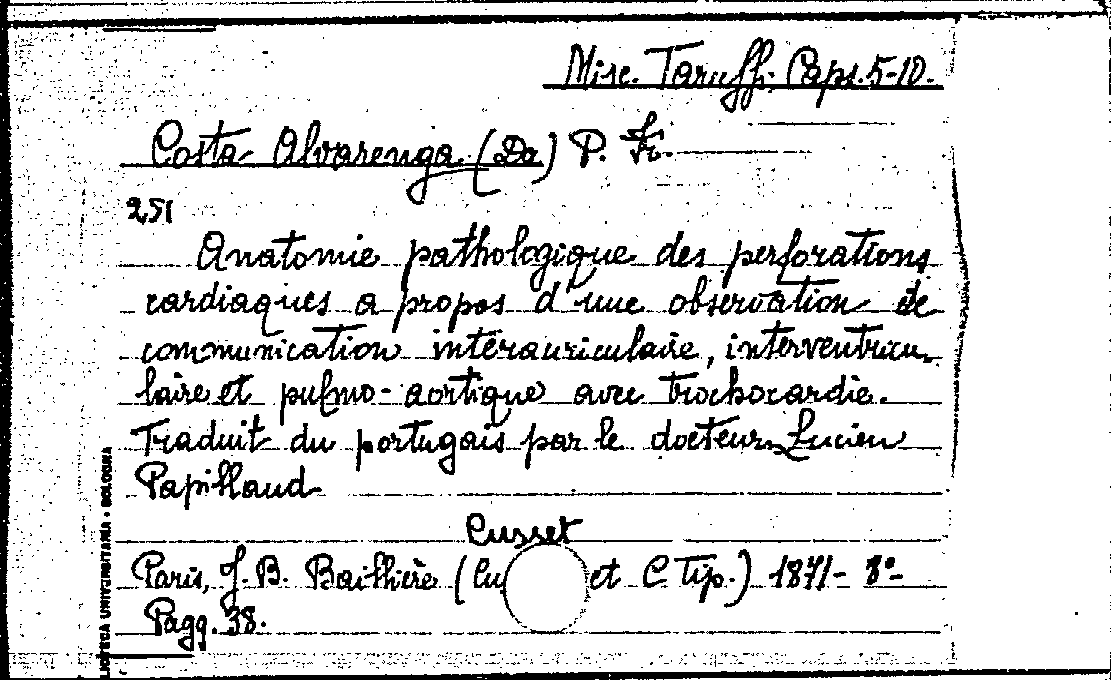 Misc. Taruffi. Caps. 5-10.
Costa Alvarenga (Da) P. Fr.
251
Anatomie pathologique des perforations
cardiaques a propos d'une observation de
communication intérauriculaire, interventricu-
laire et pulmo-aortique avec trochocardie.
Traduit du portugais par le docteur Lucien
Papillaud
Cusset
Paris, J. B. Baillière (Cu et C. Tip.) 1871 - 8º -
Pagg. 38.
UNIVERSITARIA • BOLOGNA